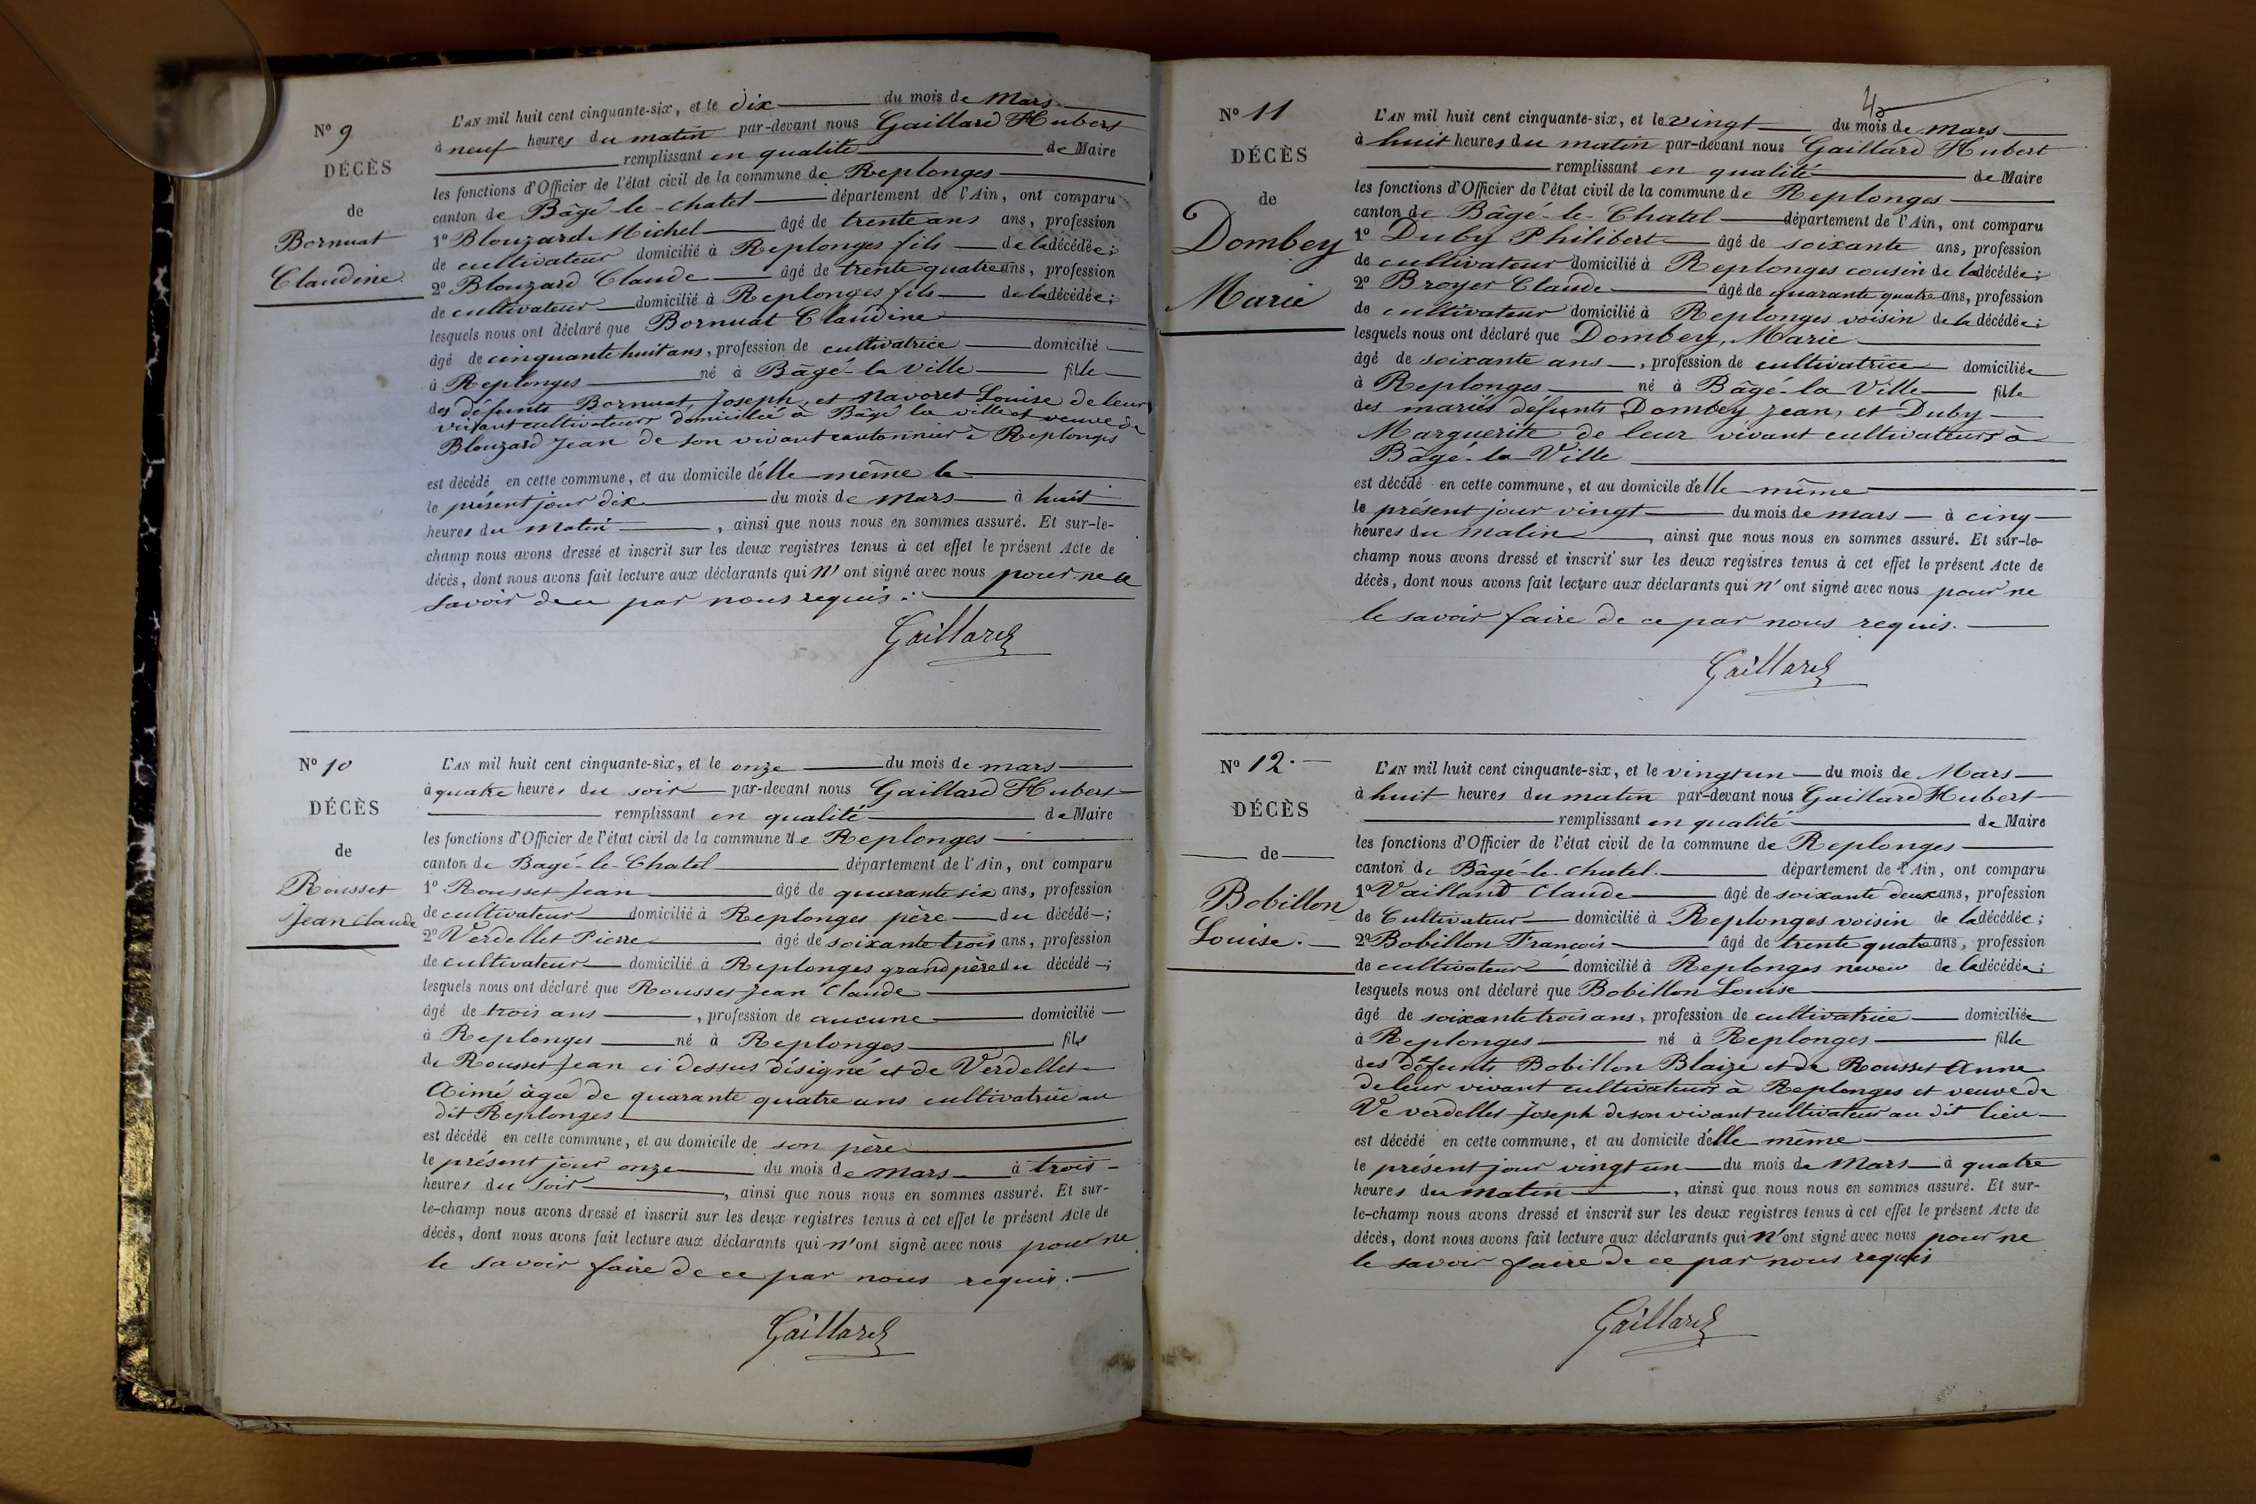 N° 9
DÉCÈS
de
Bornuat
Claudine.
L'AN mil huit cent cinquante-six, et le dix du mois de Mars
à neuf heures du matin par-devant nous Gaillard Hubert
remplissant en qualité de Maire
les fonctions d'Officier de l'état civil de la commune de Replonges
canton de Bâgé-le-chatel département de l'Ain, ont comparu
1° Blouzard Michel âgé de trente ans ans, profession
de cultivateur domicilié à Replonges fils de la décédée;
2° Blouzard Claude âgé de trente quatre ans, profession
de cultivateur domicilié à Replonges fils de la décédée;
lesquels nous ont déclaré que Bornuat Claudine
âgé de cinquante huit ans, profession de cultivatrice domicilié
à Replonges né à Bâgé-la ville fille
des défunts Bornuat Joseph, et Navoret Louise de leur
vivant cultivateurs domicilié à Bâgé la ville et veuve de
Blouzard Jean de son vivant cantonnier à Replonges
est décédé en cette commune, et au domicile d'elle même le
le présent jour dix du mois de mars à huit
heures du matin, ainsi que nous nous en sommes assuré. Et sur-le-
champ nous avons dressé et inscrit sur les deux registres tenus à cet effet le présent Acte de
décès, dont nous avons fait lecture aux déclarants qui n'ont signé avec nous pour ne le
savoir de ce par nous requis.
Gaillard
N° 10
DÉCÈS
de
Rousset
Jean Claude
L'AN mil huit cent cinquante-six, et le onze du mois de mars
à quatre heures du soir par-devant nous Gaillard Hubert
remplissant en qualité de Maire
les fonctions d'Officier de l'état civil de la commune de Replonges
canton de Bagé-le-Chatel département de l'Ain, ont comparu
1° Rousset Jean âgé de quarante six ans, profession
de cultivateur domicilié à Replonges père du décédé;
2° Verdellet Pierre âgé de soixante trois ans, profession
de cultivateur domicilié à Replonges grand père du décédé;
lesquels nous ont déclaré que Rousset Jean Claude
âgé de trois ans, profession de aucune domicilié
à Replonges né à Replonges fils
de Rousset Jean ci dessus désigné et de Verdellet
Aimé âgée de quarante quatre ans cultivatrice au
dit Replonges
est décédé en cette commune, et au domicile de son père
le présent jour onze du mois de mars à trois
heures du soir, ainsi que nous nous en sommes assuré. Et sur-
le-champ nous avons dressé et inscrit sur les deux registres tenus à cet effet le présent Acte de
décès, dont nous avons fait lecture aux déclarants qui n'ont signé avec nous pour ne
le savoir faire de ce par nous requis.
Gaillard
N° 11
DÉCÈS
de
Dombey
Marie
L'AN mil huit cent cinquante-six, et le vingt du mois de mars
à huit heures du matin par-devant nous Gaillard Hubert
remplissant en qualité de Maire
les fonctions d'Officier de l'état civil de la commune de Replonges
canton de Bâgé-le-Chatel département de l'Ain, ont comparu
1° Duby Philibert âgé de soixante ans, profession
de cultivateur domicilié à Replonges cousin de la décédée;
2° Broyer Claude âgé de quarante quatre ans, profession
de cultivateur domicilié à Replonges voisin de la décédée;
lesquels nous ont déclaré que Dombey, Marie
âgé de soixante ans, profession de cultivatrice domiciliée
à Replonges né à Bâgé-la Ville fille
des mariés défunts Dombey Jean, et Duby
Marguerite de leur vivant cultivateurs à
Bâgé-la-Ville
est décédé en cette commune, et au domicile d'elle même
le présent jour vingt du mois de mars à cinq
heures du matin, ainsi que nous nous en sommes assuré. Et sur-le-
champ nous avons dressé et inscrit sur les deux registres tenus à cet effet le présent Acte de
décès, dont nous avons fait lecture aux déclarants qui n'ont signé avec nous pour ne
le savoir faire de ce par nous requis.
Gaillard
N° 12.
DÉCÈS
de
Bobillon
Louise.
L'AN mil huit cent cinquante-six, et le vingt un du mois de Mars
à huit heures du matin par-devant nous Gaillard Hubert
remplissant en qualité de Maire
les fonctions d'Officier de l'état civil de la commune de Replonges
canton de Bâgé-le-chatel. département de l'Ain, ont comparu
1° Vailland Claude âgé de soixante deux ans, profession
de Cultivateur domicilié à Replonges voisin de la décédée;
2° Bobillon François âgé de trente quatre ans, profession
de cultivateur domicilié à Replonges neveu de la décédée;
lesquels nous ont déclaré que Bobillon Louise
âgé de soixante trois ans, profession de cultivatrice domiciliée
à Replonges né à Replonges fille
des défunts Bobillon Blaize et de Rousset Anne
de leur vivant cultivateurs à Replonges et veuve de
Ve verdellet Joseph de son vivant cultivateur au dit lieu
est décédé en cette commune, et au domicile d'elle même
le présent jour vingt un du mois de Mars à quatre
heures du matin, ainsi que nous nous en sommes assuré. Et sur-
le-champ nous avons dressé et inscrit sur les deux registres tenus à cet effet le présent Acte de
décès, dont nous avons fait lecture aux déclarants qui n'ont signé avec nous pour ne
le savoir faire de ce par nous requis
Gaillard